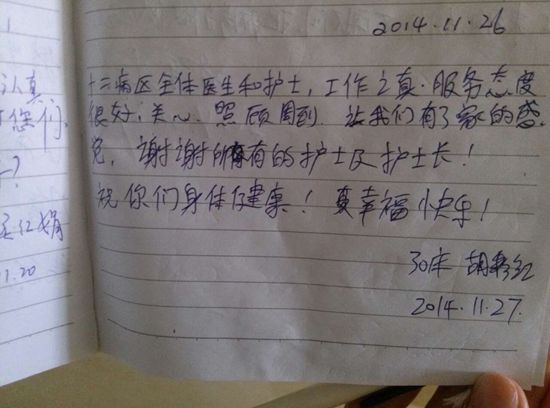 认真
您们
?
红娟
1.20
2014.11.26
十二病区全体医生和护士,工作认真.服务态度
很好,关心.照顾周到.让我们有了家的感
觉,谢谢所有的护士及护士长!
祝你们身体健康!幸福快乐!
30床 胡红
2014.11.27.